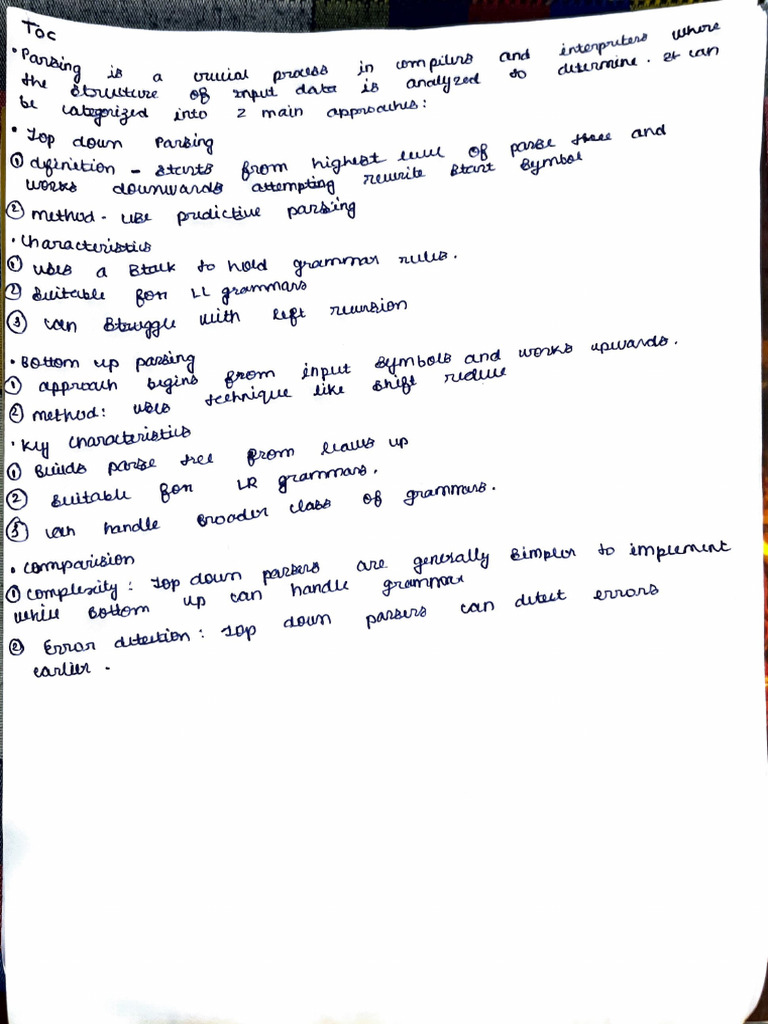 TOC
• Parsing is a crucial process in compilers and interpreters where
the structure of input data is analyzed to determine. It can
be categorized into 2 main approaches:
• Top down Parsing
① definition - starts from highest level of parse tree and
works downwards attempting rewrite start symbol
② method - use predictive parsing
• Characteristics
① uses a stack to hold grammar rules.
② Suitable for LL grammars
③ can struggle with left recursion
• Bottom up parsing
① approach begins from input symbols and works upwards.
② method: uses technique like shift reduce
• Key characteristics
① Builds parse tree from leaves up
② suitable for LR grammars.
③ can handle broader class of grammars.
• Comparision
① Complexity: Top down parsers are generally simpler to implement
while Bottom up can handle grammar
② Error detection: Top down parsers can detect errors
earlier.